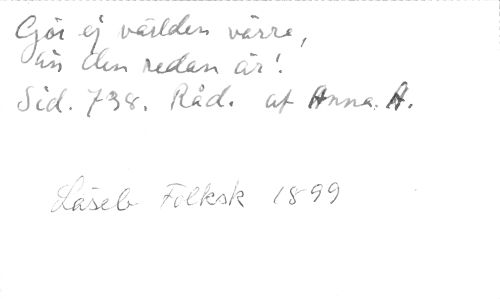 Gör ej världen värre,
än den redan är!
Sid. 738. Råd. af Anna. A.
Läseb Folksk 1899